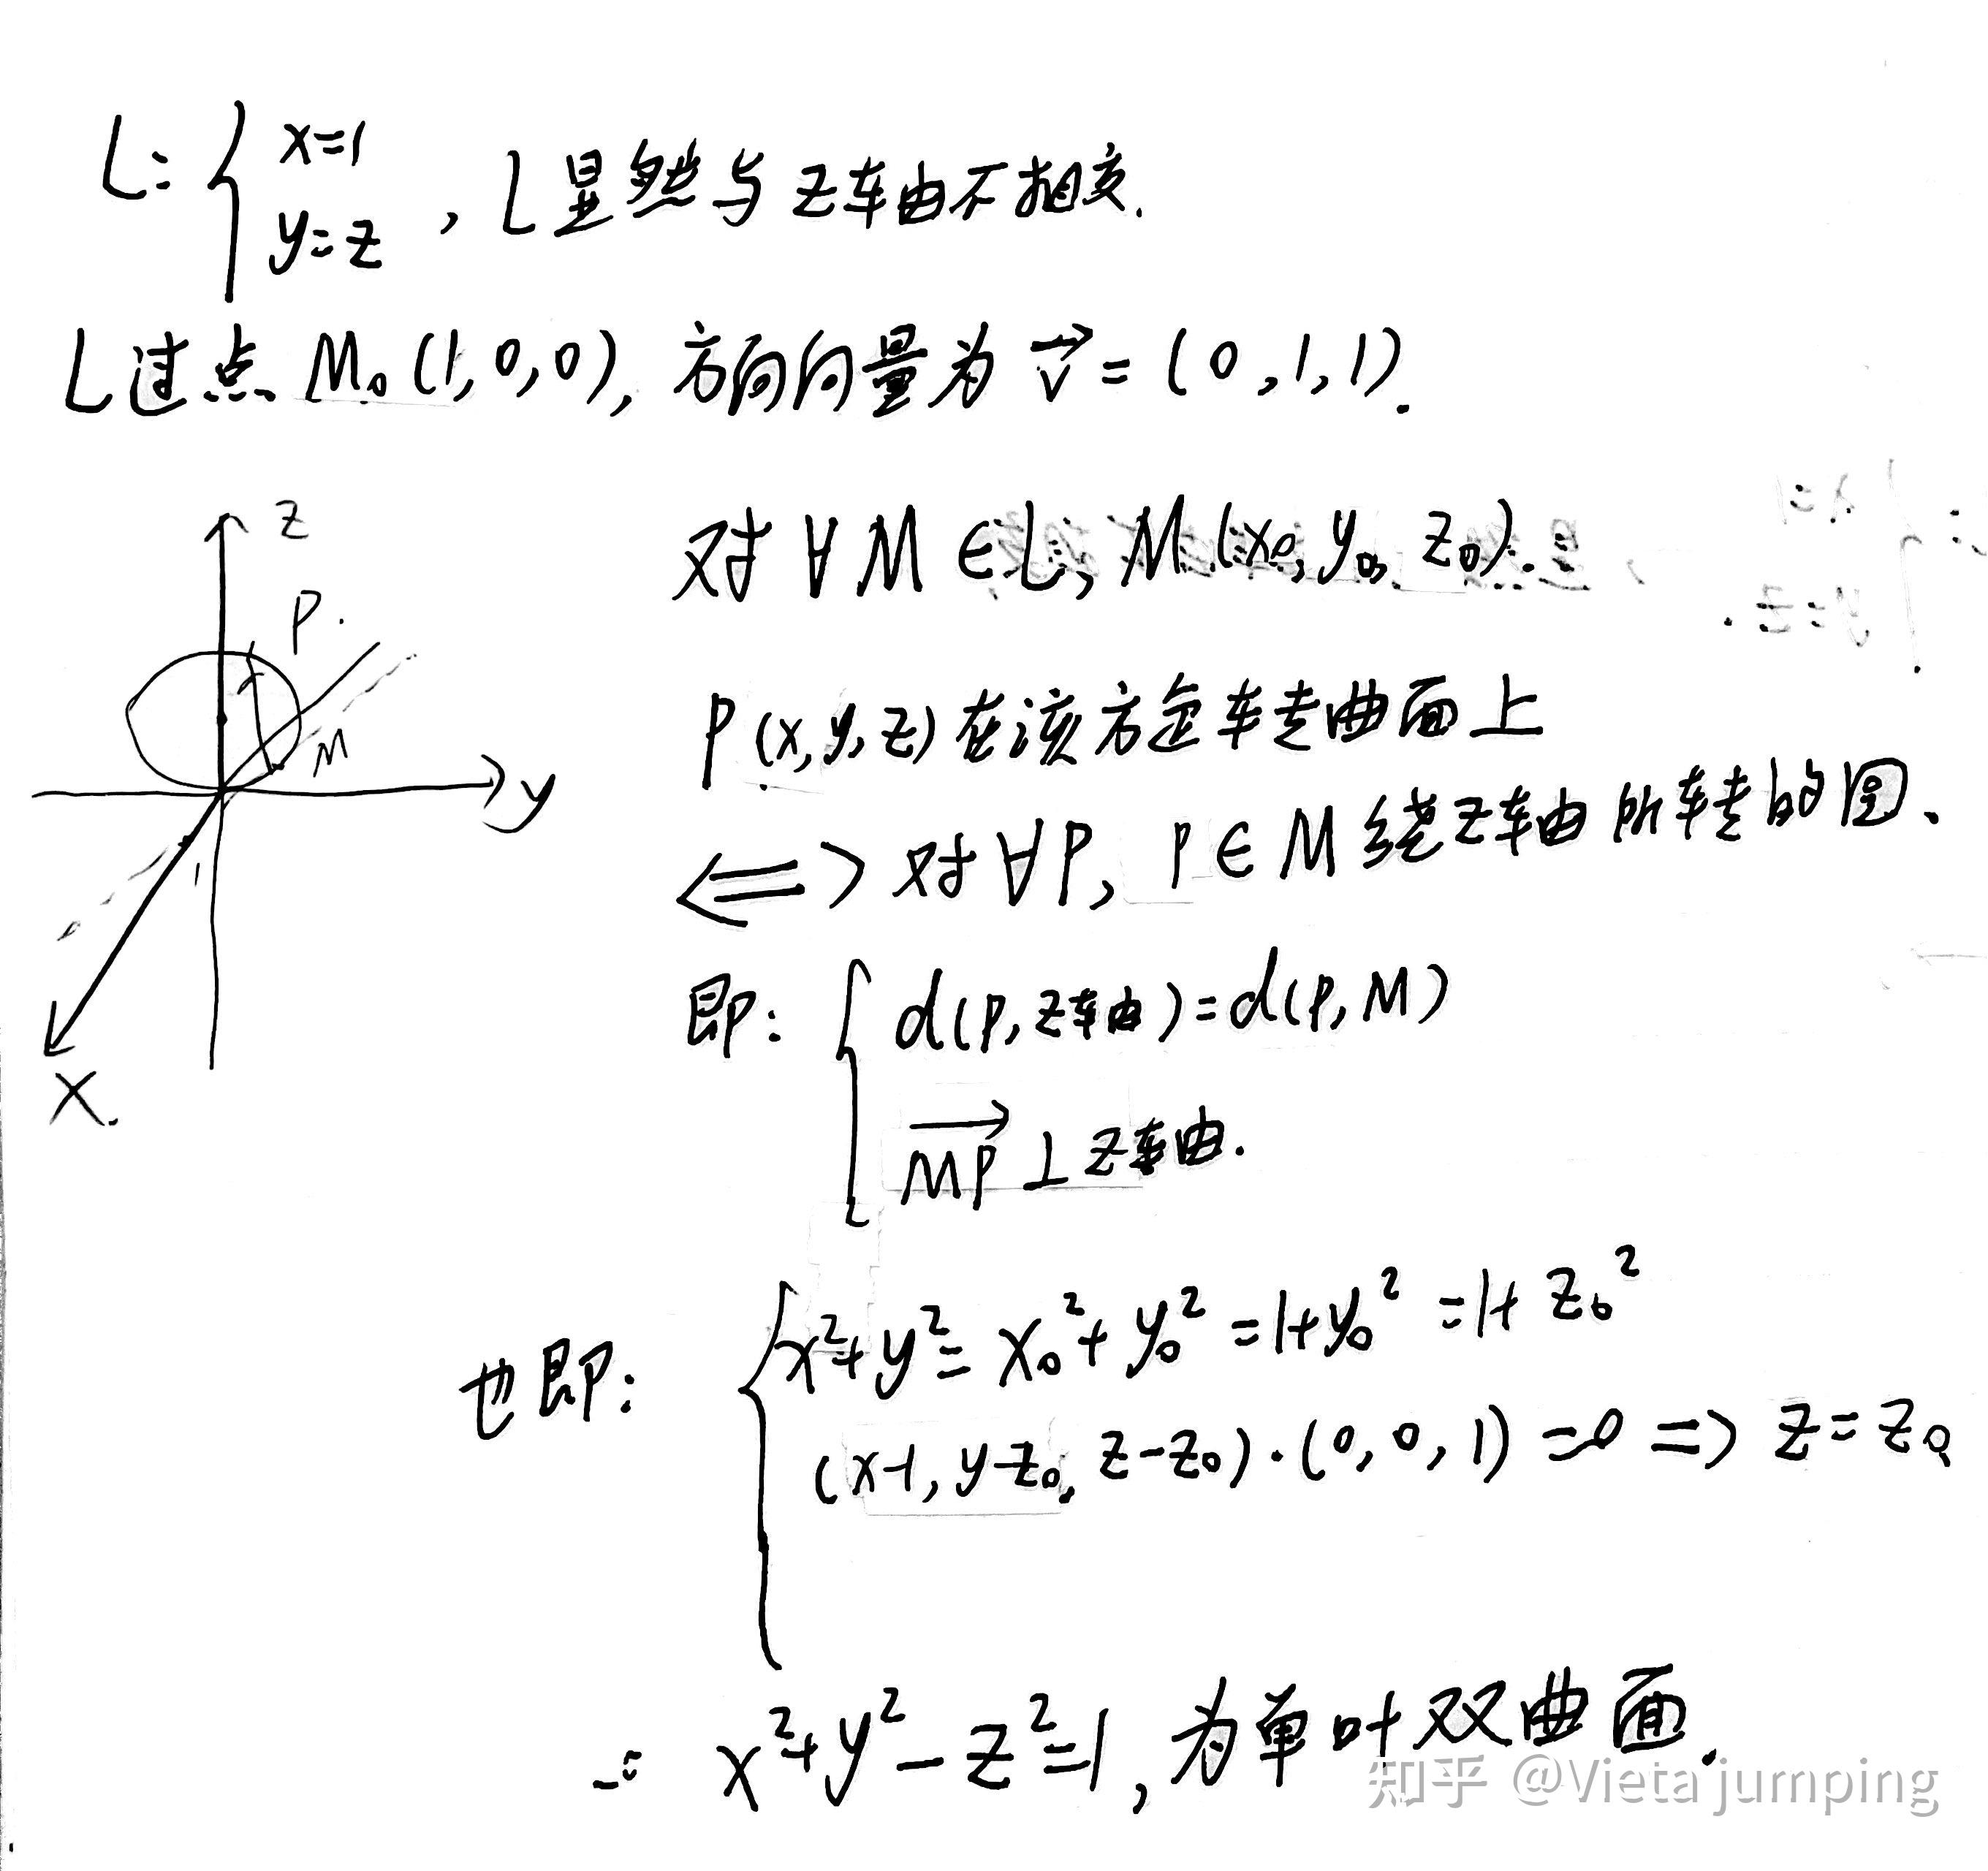 L: { x=1
y=z , L显然与z轴不相交.
L过点 M₀(1,0,0), 方向向量为 v⃗=(0,1,1).
z
P.
M
y
x.
对∀M∈L, M(x₀,y₀,z₀).
P(x,y,z)在该旋转曲面上
⟺ 对∀P, P∈M绕z轴所转的圆、
即: { d(P,z轴)=d(P,M)
MP⃗⊥z轴.
也即: { x²+y²=x₀²+y₀²=1+y₀²=1+z₀²
(x-1, y-z₀, z-z₀)·(0,0,1)=0 ⇒ z=z₀
∴ x²+y²-z²=1, 为单叶双曲面.
知乎 @Vieta jumping